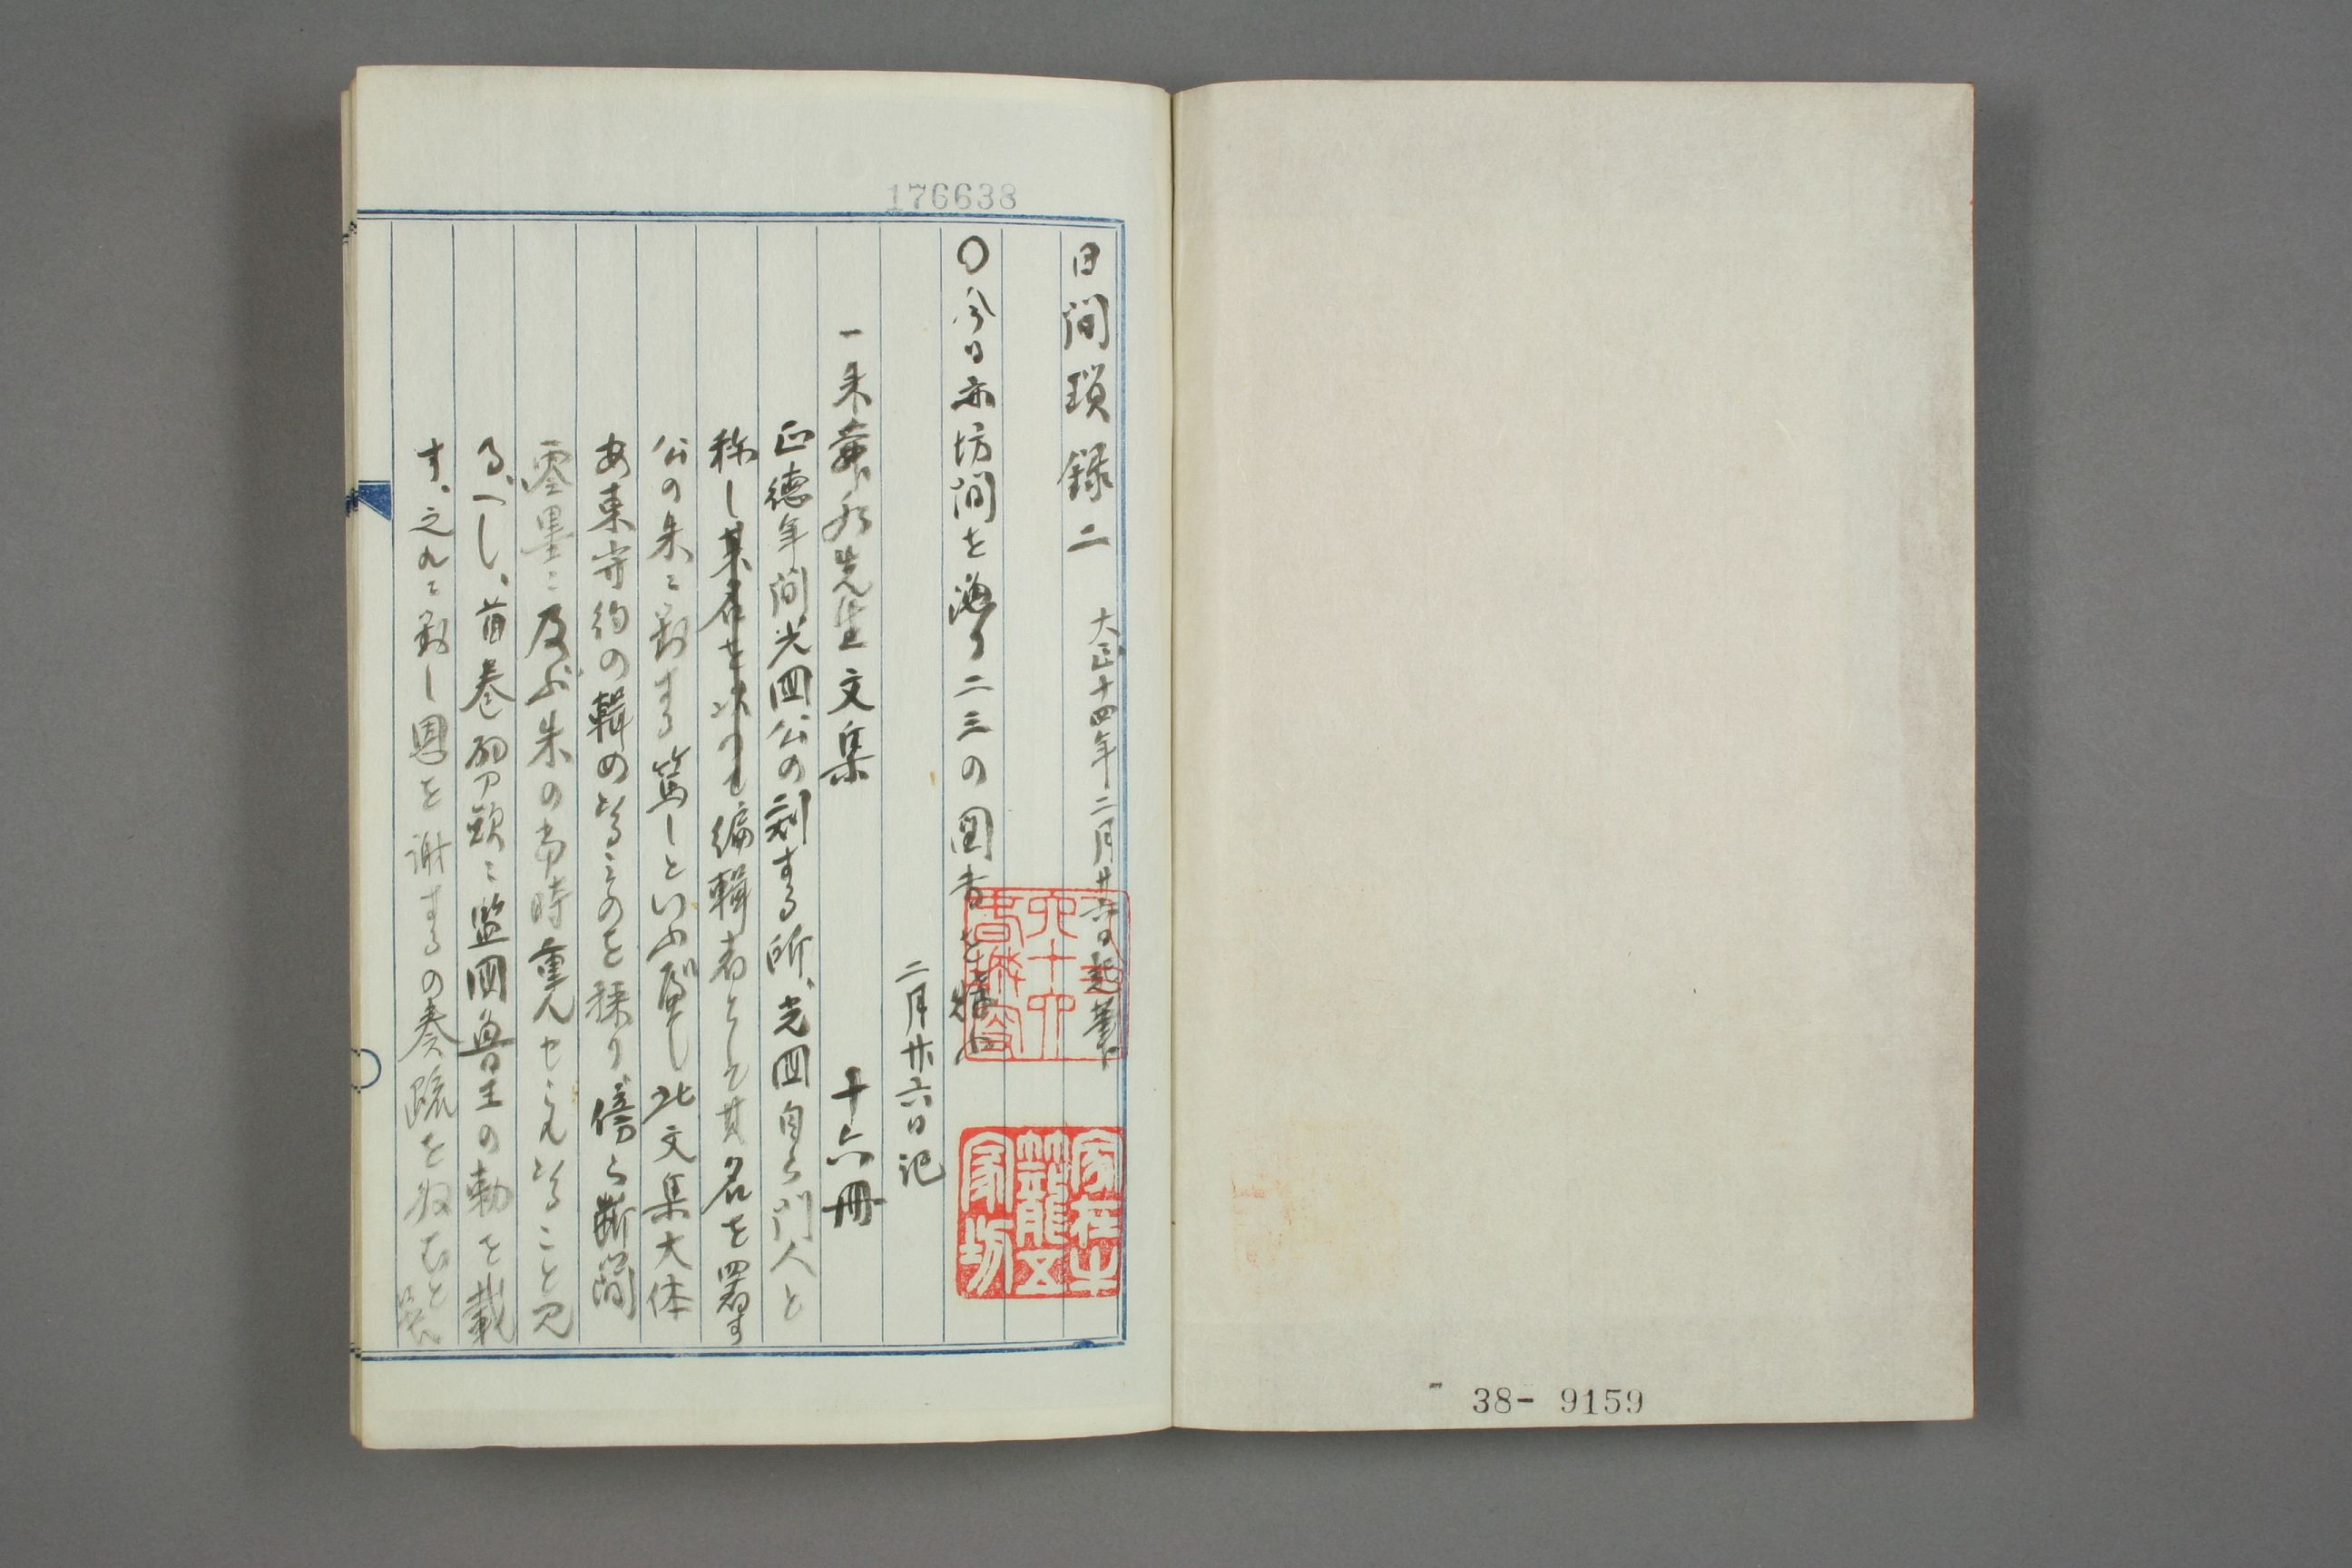 176638
日間瑣録二 大正十四年二月廿六日起筆
〇今日亦坊間を漁り二三の図書を獲たり
二月廿六日記
一朱舜水先生文集 十六冊
正徳年間光圀公の刻する所、光圀自ら門人と
称し其名を以つて編輯者として其名を署す
公の朱に対する篤しといふべし此文集大体
安東守約の輯めたるものを採り、傍ら断簡
零墨に及ぶ朱の当時重んせられたること見
るべし、首巻劈頭に監国魯王の勅を載
す、之れに対し恩を謝するの奏疏を
38-9159